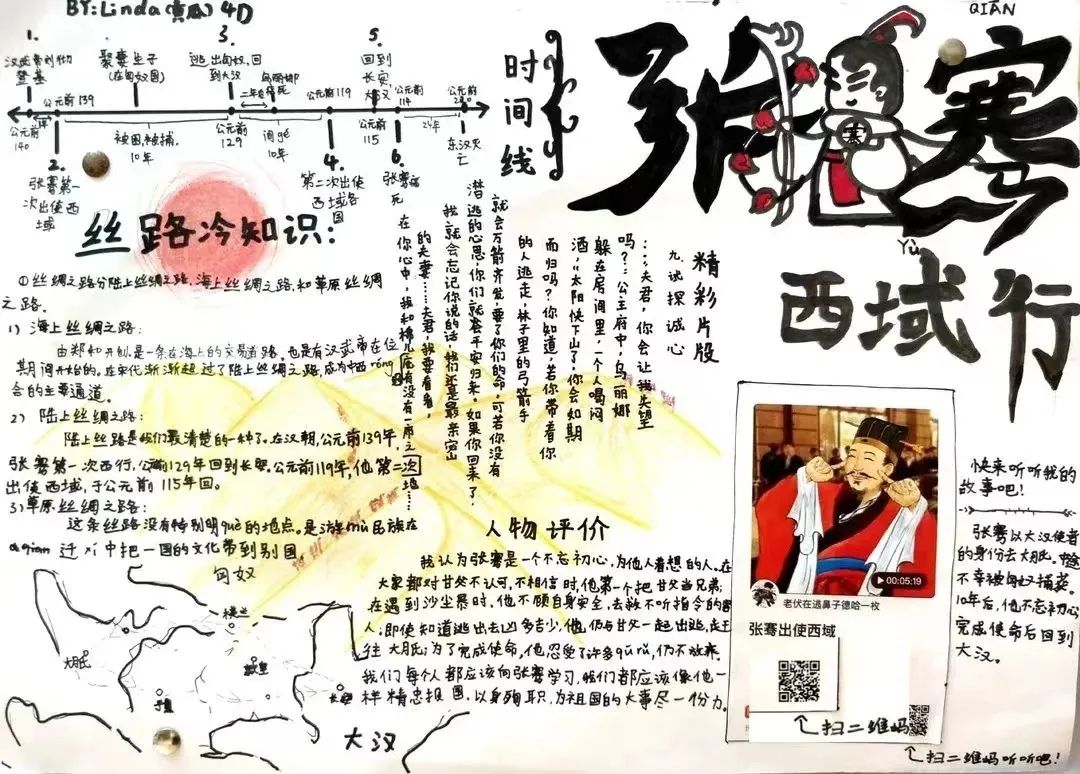 BY:Linda(黄瓜) 4D
1.
汉武帝刘彻
登基
娶妻生子
(在匈奴国)
3.
逃出匈奴,回
到大汉
5.
回到
长安
大汉
公元前139
二年
公元前119
公元前
114
公元前
公元前
140
被困被捕,
10年
公元前
129
间gé
10年
公元前
115
24年
东汉灭
亡
2.
张骞第一
次出使西
域
4.
第二次出使
西域各
国
6.
张骞病
死
时间线
QIĀN
张骞
骞
Yù
西域行
丝路冷知识:
①丝绸之路分陆上丝绸之路,海上丝绸之路,和草原丝绸
之路。
1) 海上丝绸之路:
由郑和开创,是一条在海上的交易道路。也是有汉武帝在位
期间开始的。在宋代渐渐超过了陆上丝绸之路,成为中西róng
合的主要通道。
2) 陆上丝绸之路:
陆上丝路是我们最清楚的一种了。在汉朝,公元前139年,
张骞第一次西行,公元前129年回到长安。公元前119年,他第二次
出使西域,于公元前115年回。
3)草原丝绸之路:
这条丝路没有特别明què的地点。是游mù民族在
qiān迁xǐ中把一国的文化带到别国。
精彩片段
九试探诚心
……夫君,你会让我失望
吗?…公主府中,乌丽娜
躲在房间里,一个人喝闷
酒,“太阳快下山了,你会如期
而归吗?你知道,若你带着你
的人逃走,林子里的弓箭手
就会万箭齐发,要了你们的命,可若你没有
潜逃的心思,你们就会平安归来。如果你回来了,
我就会忘记你说的话,我们还是最亲密
的夫妻……夫君,我要看看,
在你心中,我和棉儿,到底有没有一席之
地……
人物评价
我认为张骞是一个不忘初心,为他人着想的人。在
大家都对甘父不认可,不相信时,他第一个把甘父当兄弟;
在遇到沙尘暴时,他不顾自身安全,去救不听指令的商
人;即使知道逃出去凶多吉少,他仍与甘父一起出逃,赶
往大月氏;为了完成使命,他忍受了许多qū rǔ,仍不放弃。
我们每个人都应该向张骞学习,我们都应该像他一
样精忠报国,以身殉职,为祖国的大事尽一份力。
匈奴
楼兰
大月氏
敦皇
于阗
长安
大汉
00:05:19
老伏在逃鼻子德哈一枚
张骞出使西域
扫二维码
快来听听我的
故事吧!
张骞以大汉使者
的身份去大月氏,中途
不幸被匈奴捕获。
10年后,他不忘初心
完成使命后回到
大汉。
扫二维码听听吧!